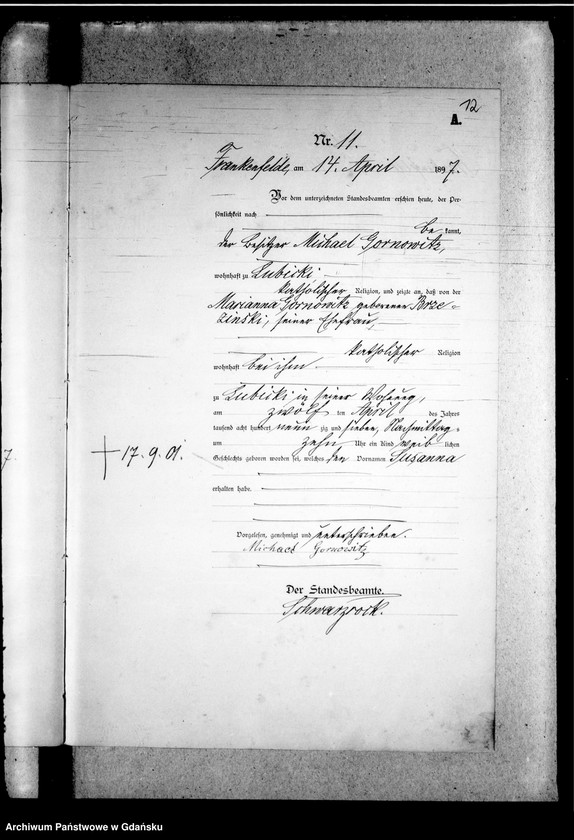 12
A.
Nr. 11.
Frankenfelde, am 14. April 1897.
Vor dem unterzeichneten Standesbeamten erschien heute, der Per-
sönlichkeit nach
be kannt,
der Besitzer Michael Gornowitz,
wohnhaft zu Lubicki
katholischer Religion, und zeigte an, daß von der
Marianna Gornowitz geborenen Brze-
zinski, seiner Ehefrau,
katholischer Religion
wohnhaft bei ihm.
zu Lubicki in seiner Wohnung,
am zwölf ten April des Jahres
tausend acht hundert neun zig und sieben, Nachmittag-
um zehn Uhr ein Kind weib lichen
Geschlechts geboren worden sei, welches den Vornamen Susanna
7
+ 17. 9. 01.
erhalten habe.
Vorgelesen, genehmigt und unterschrieben.
Michael Gornowitz
Der Standesbeamte.
Schwarzrock.
Archiwum Państwowe w Gdańsku